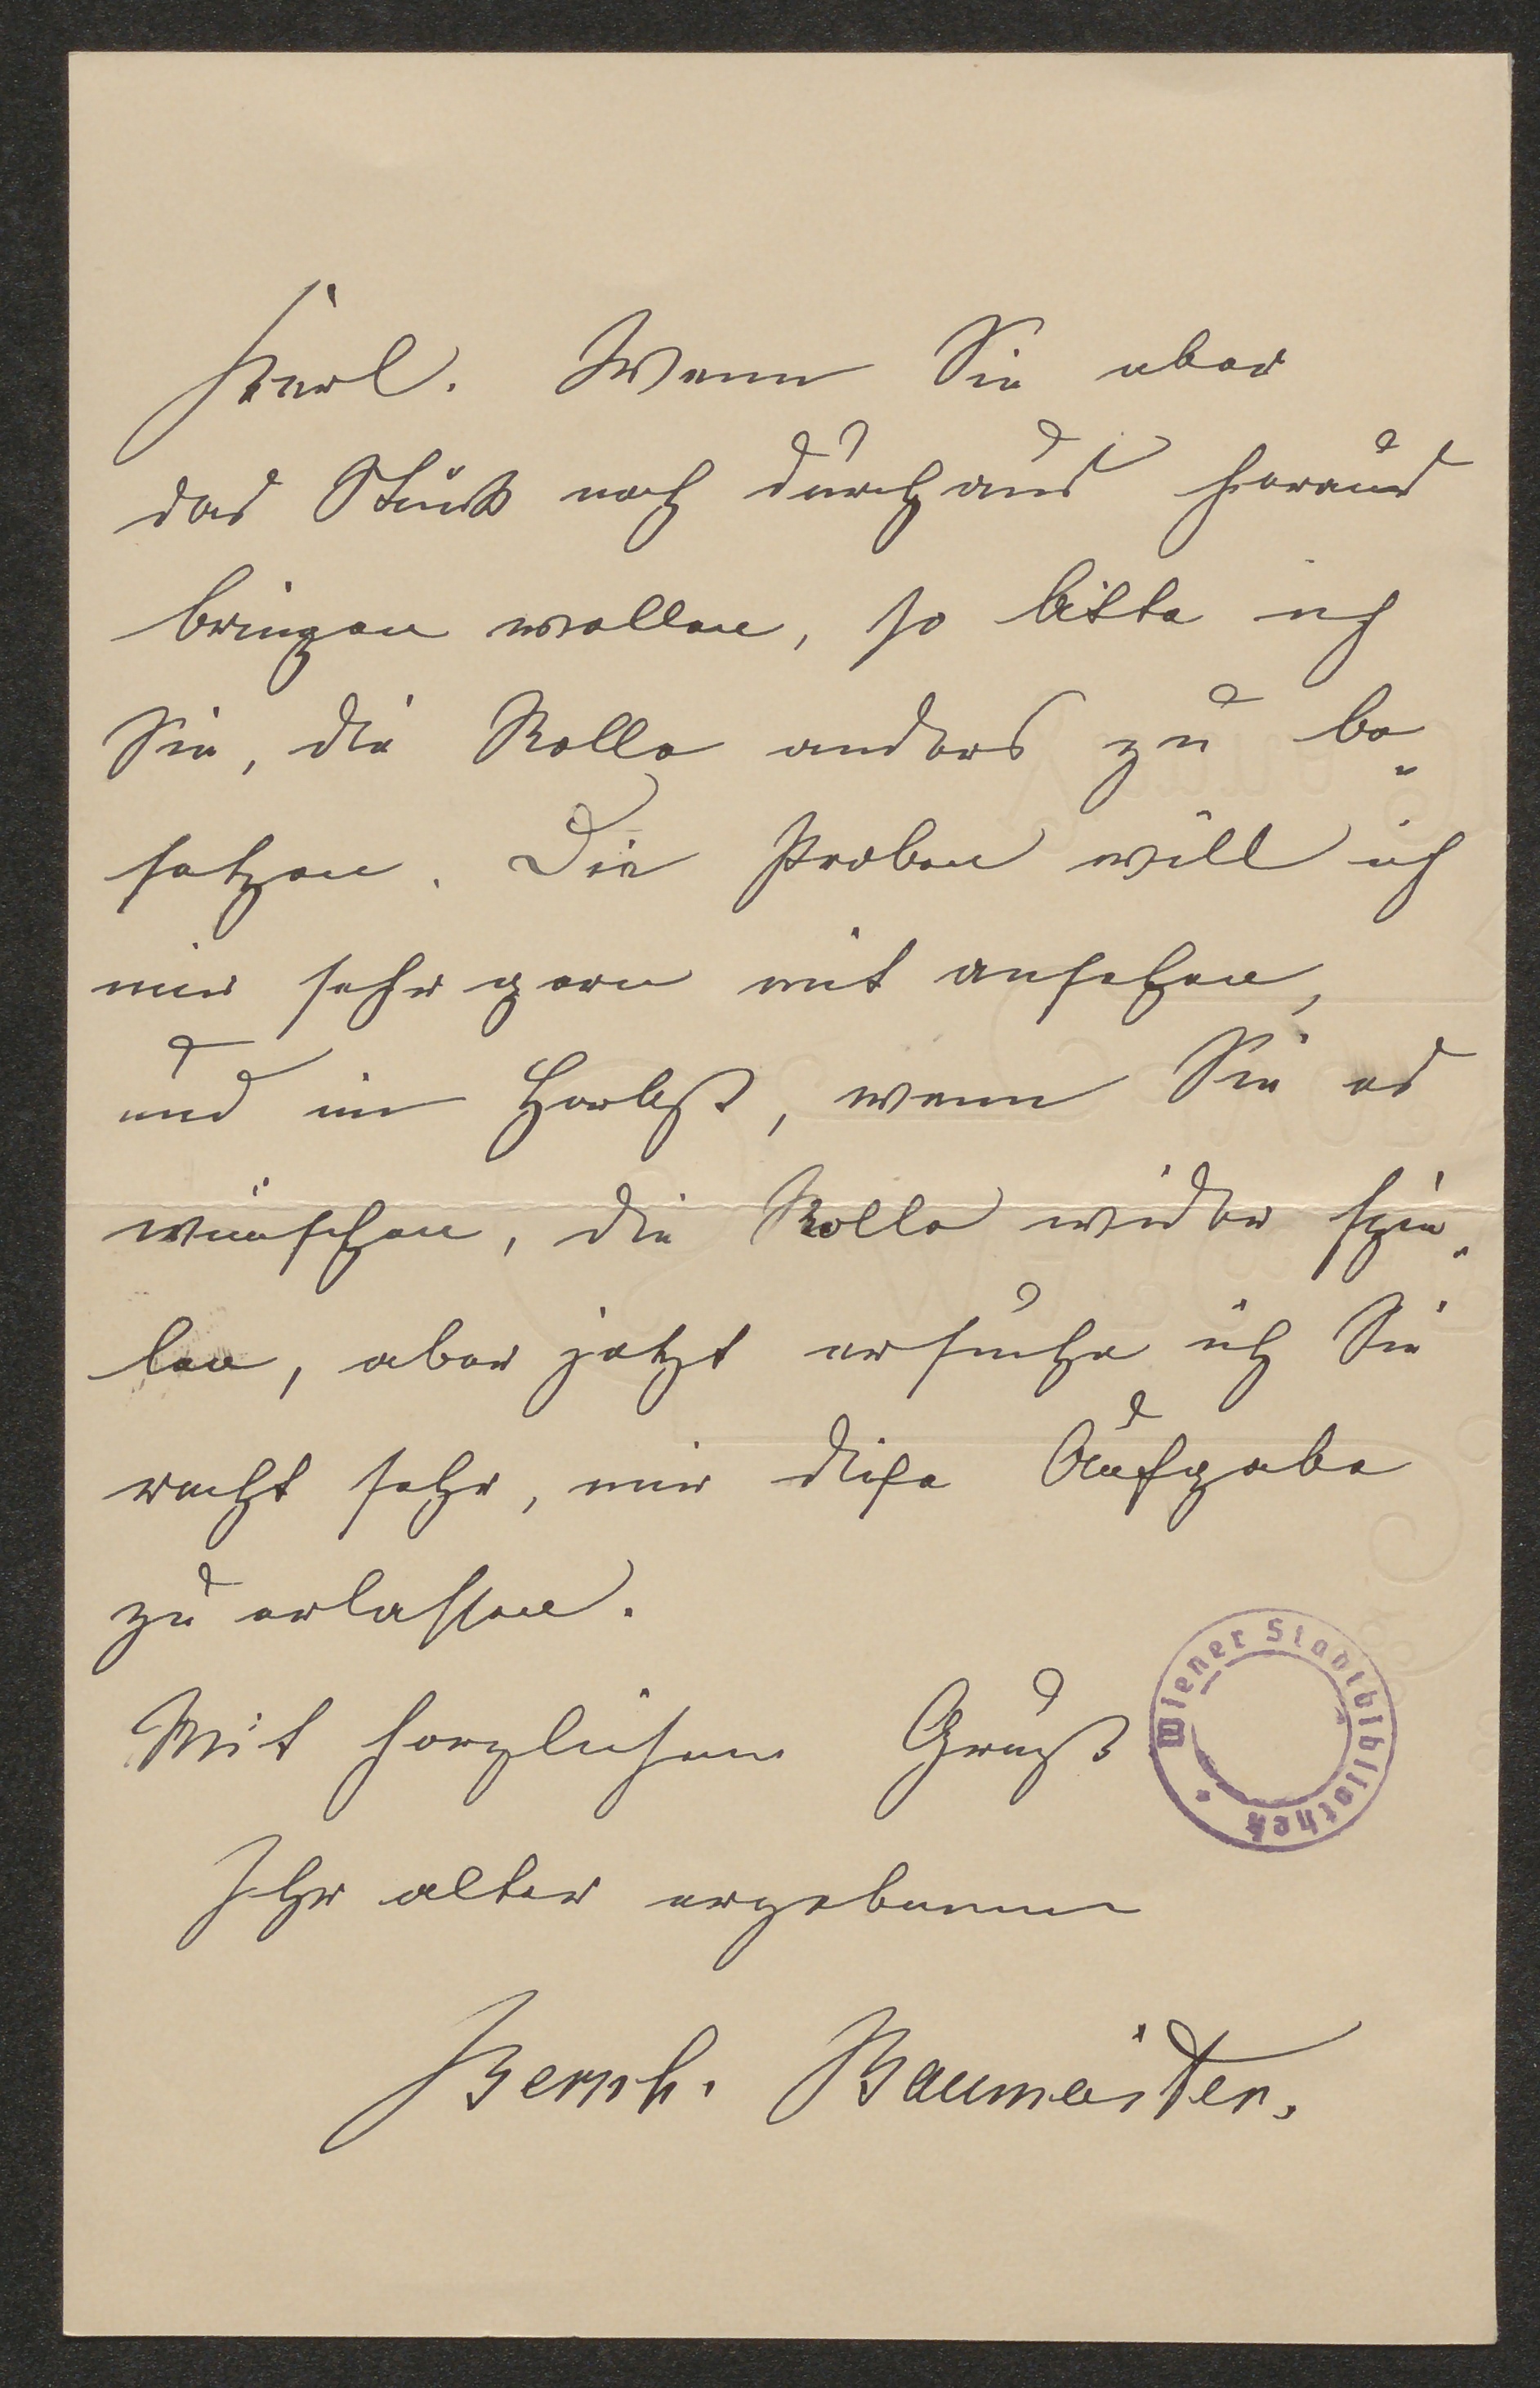 Kerl. Wenn Sie aber
das Stück noch durchaus heraus
bringen wollen, so bitte ich
Sie, die Rolle anders zu be„
setzen. Die Proben will ich
mir sehr gern mit ansehen,
und im Herbst, wenn Sie es
wünschen, die Rolle wieder spie„
len, aber jetzt ersuche ich Sie
recht sehr, mir diese Aufgabe
zu erlassen.
Mit herzlichem Gruß
Ihr alter ergebener
Bernh. Baumeister.
Wiener Stadtbibliothek